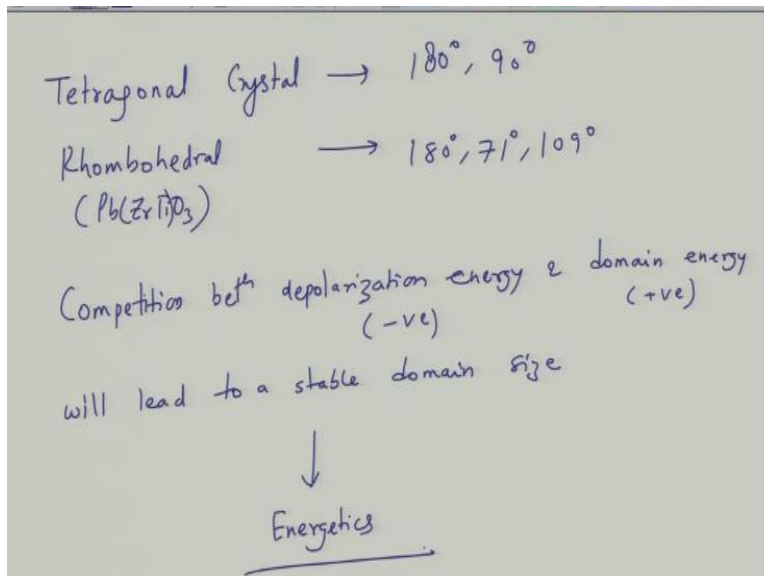 Tetragonal Crystal → 180°, 90°
Rhombohedral → 180°, 71°, 109°
(Pb(ZrTi)O3)
Competition betⁿ depolarization energy & domain energy
(-ve) (+ve)
will lead to a stable domain size
↓
Energetics